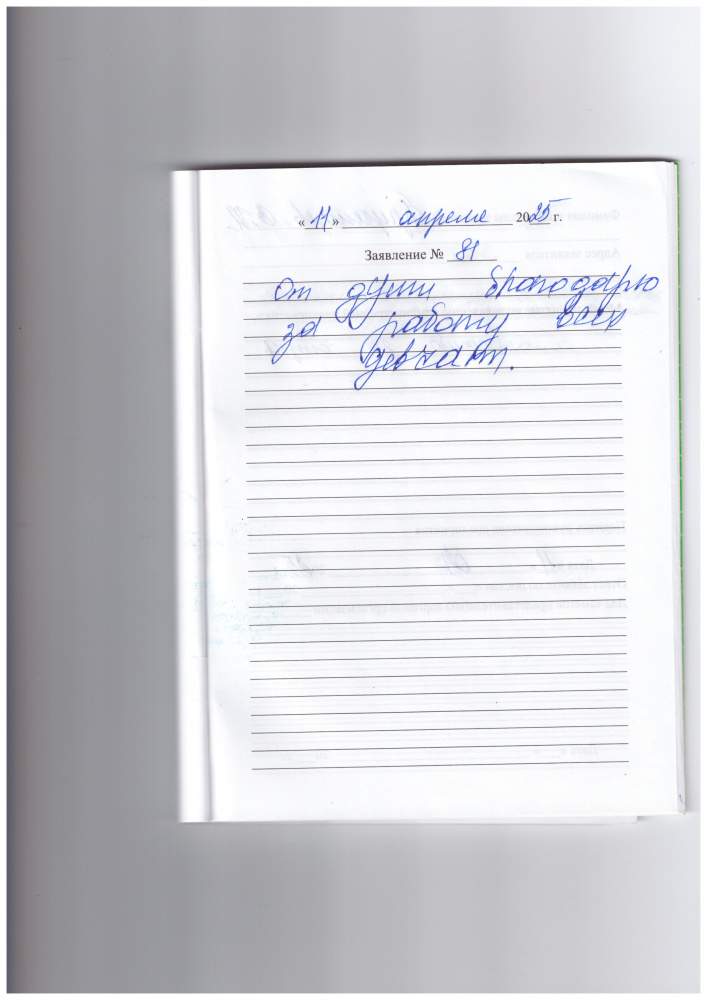 « 11 » апреле 2025 г.
Заявление № 81
От души благодарю
за работу всех
девчат.